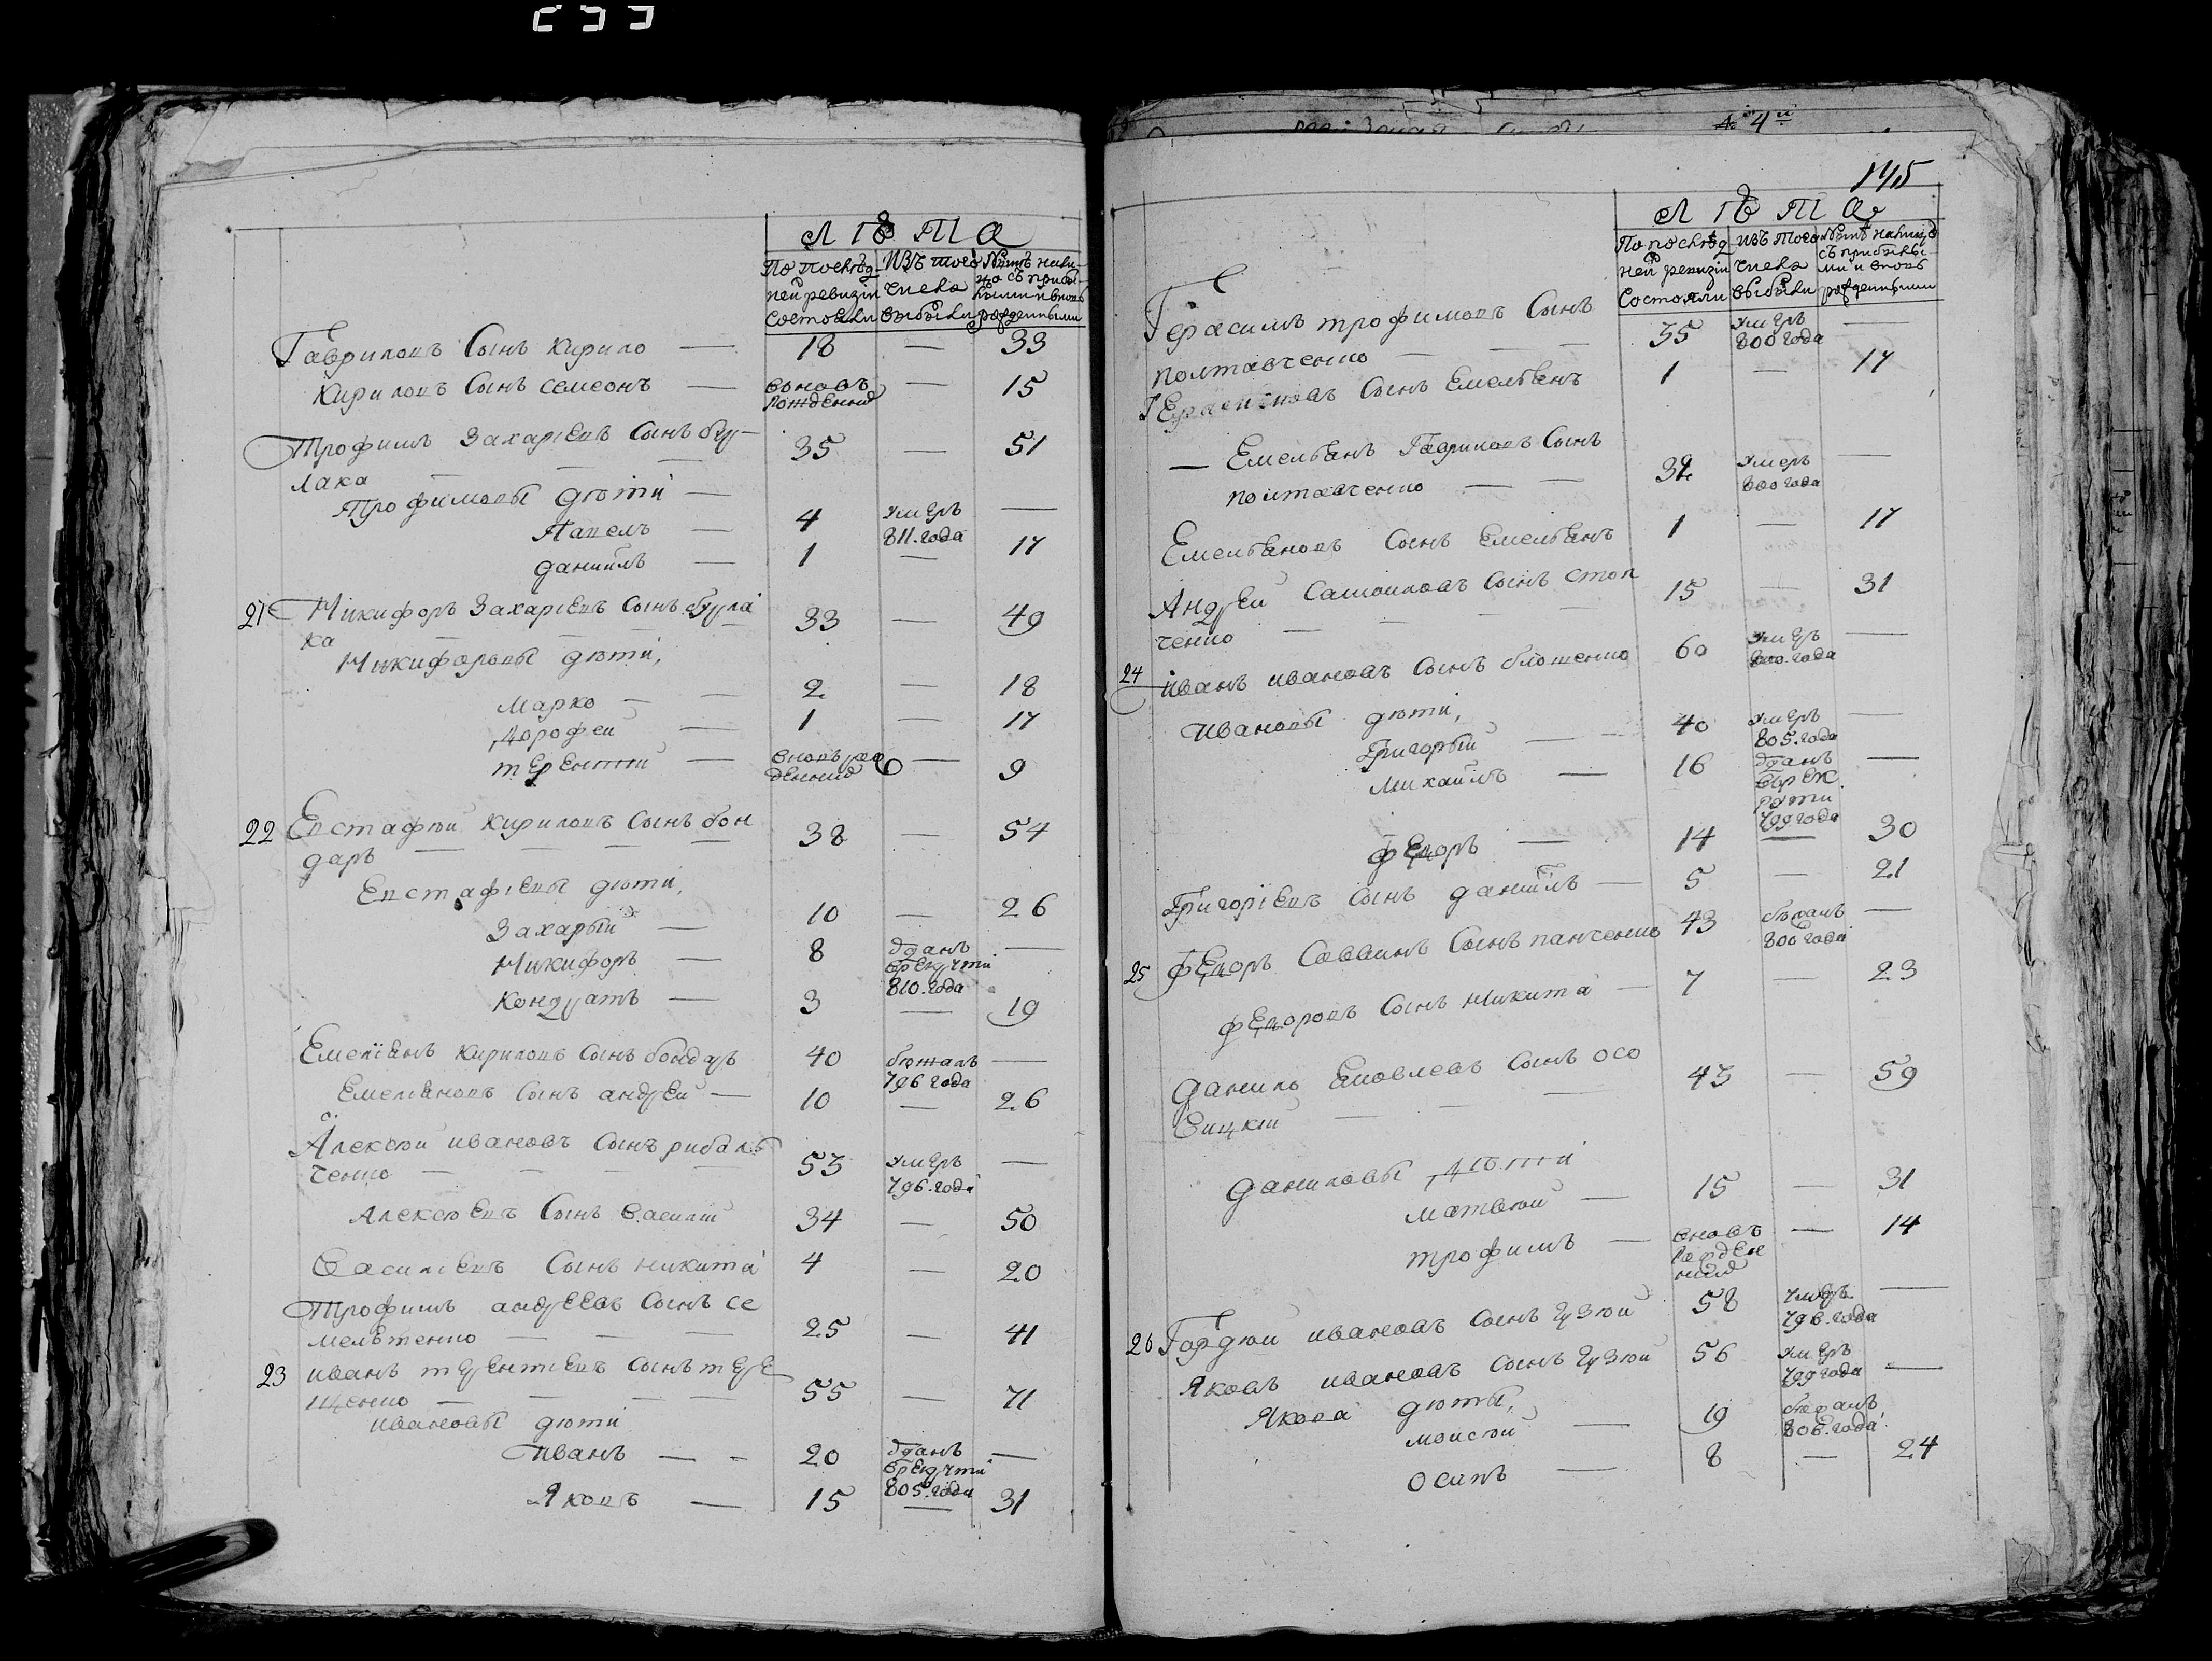 ЛѢТА
По послѣд- Изъ того Нынѣ нали-
ней ревизіи числа цо съ прибы-
Состояли выбыли лыми и вновь
рожденными
Гавриловъ Сынъ Кирило — 18 — 33
Кириловъ Сынъ Семеонъ — вновь — 15
рожденній
Трофимъ Захаріевъ Сынъ бур- 35 — 51
лака — — —
Трофимовы дѣти —
Павелъ — 4 умеръ —
811. года
даниилъ — 1 — 17
21 Никифоръ Захаріевъ Сынъ бурла 33 — 49
ка — — — —
Никифоровы дѣти,
Марко — — 2 — 18
Дорофей — 1 — 17
терентій — вновь рож — 9
денній
22 Евстафѣй Кириловъ Сынъ бон 38 — 54
даръ — — — —
Евстафіевы дѣти,
Захарый — 10 — 26
Никифоръ — 8 одданъ —
врекруты
810. года
Кондратъ — 3 — 19
Емеліанъ Кириловъ Сынъ бондаръ 40 бѣжалъ —
796 года
Емеліановъ Сынъ андрей — 10 — 26
Алексѣй ивановъ Сынъ рибаль 53 умеръ —
ченко — — — 796. года
Алексѣевъ Сынъ Василій 34 — 50
Василіевъ Сынъ никита 4 — 20
Трофимъ андреевъ Сынъ се
мелѣтенко — — — 25 — 41
23 иванъ терентіевъ Сынъ тере
щенко — — — 55 — 71
ивановы дѣти
иванъ — - 20 одданъ —
врекруты
805. года
Яковъ — 15 — 31
4й
145
ЛѢТА
По послѣд Изъ того Нынѣ налицо
ней ревизіи числа съ прибылы-
ми и вновь
Состояли выбыли рожденными
Герасимъ трофимовъ Сынъ
полтавченко — — — 35 умеръ —
800 года
Герасимовъ Сынъ Емельянъ 1 — 17
— Емельянъ Гавриловъ Сынъ
полтавченко — — 32 умеръ —
800 года
Емельяновъ Сынъ Емельянъ 1 — 17
Андрей Самоиловъ Сынъ стол 15 — 31
ченко — — — —
24 иванъ ивановъ Сынъ блошенко 60 умеръ —
800. года
ивановы дѣти,
Григорый — — 40 умеръ —
805. года
Михаилъ — 16 одданъ —
врек
руты
799 года
федоръ — 14 — 30
Григоріевъ Сынъ даниилъ — 5 — 21
25 федоръ Саввинъ Сынъ панченко 43 бѣжалъ —
800 года
федоровъ Сынъ Никита — 7 — 23
данило Яковлевъ Сынъ осо 43 — 59
вицкій — — —
даниловы дѣти
матвѣй — 15 — 31
трофимъ — вновь — 14
рожден
ній
26 Гордѣй ивановъ Сынъ гузѣй 58 умеръ —
796. года
Яковъ ивановъ Сынъ гузѣй 56 умеръ —
799 года
Якова дѣты,
моисѣй — 19 бѣжалъ
806. года
осипъ — 8 — 24